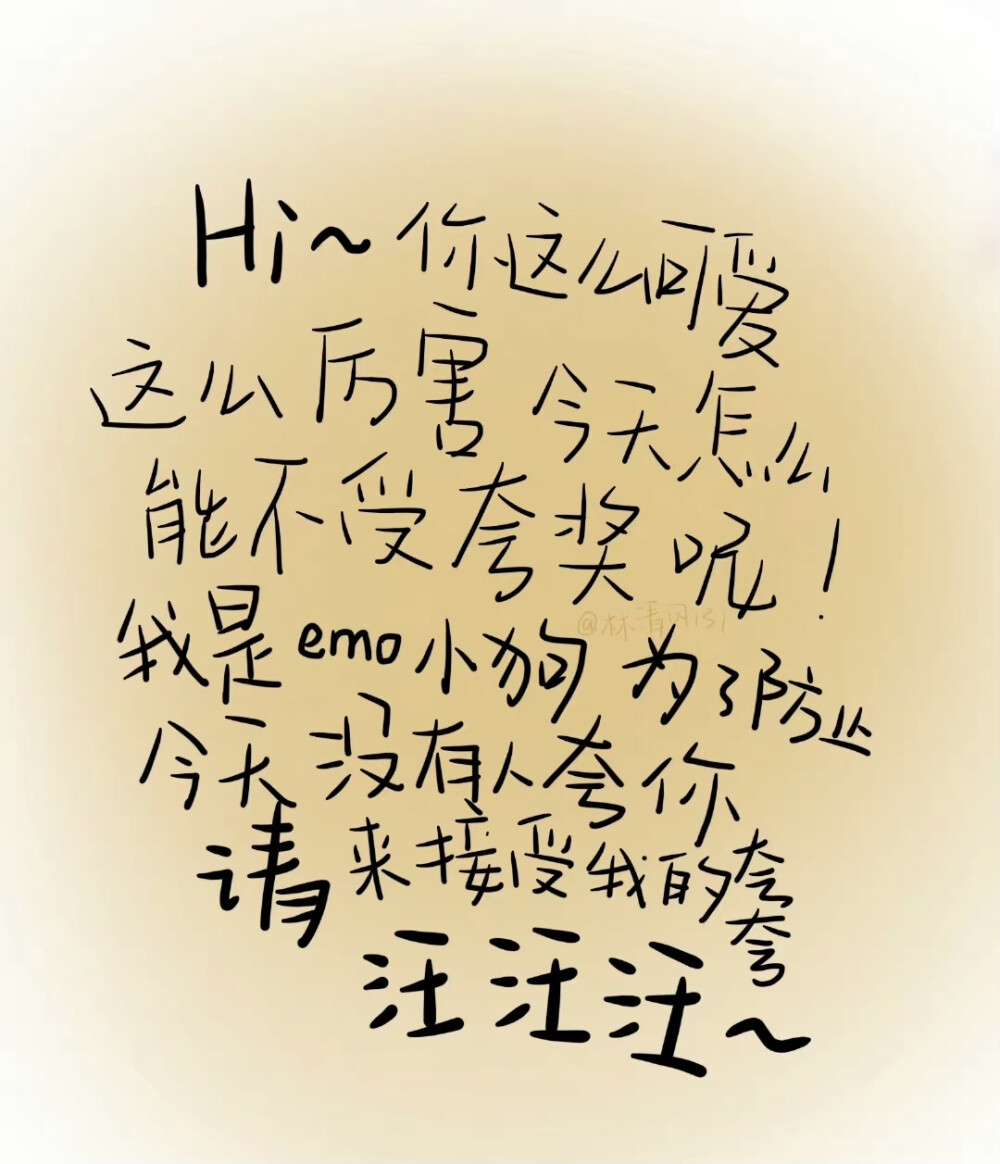 Hi~你这么可爱
这么厉害 今天怎么
能不受夸奖呢!
@林清风131
我是emo小狗 为了防止
今天没有人夸你
请来接受我的夸夸
汪汪汪~